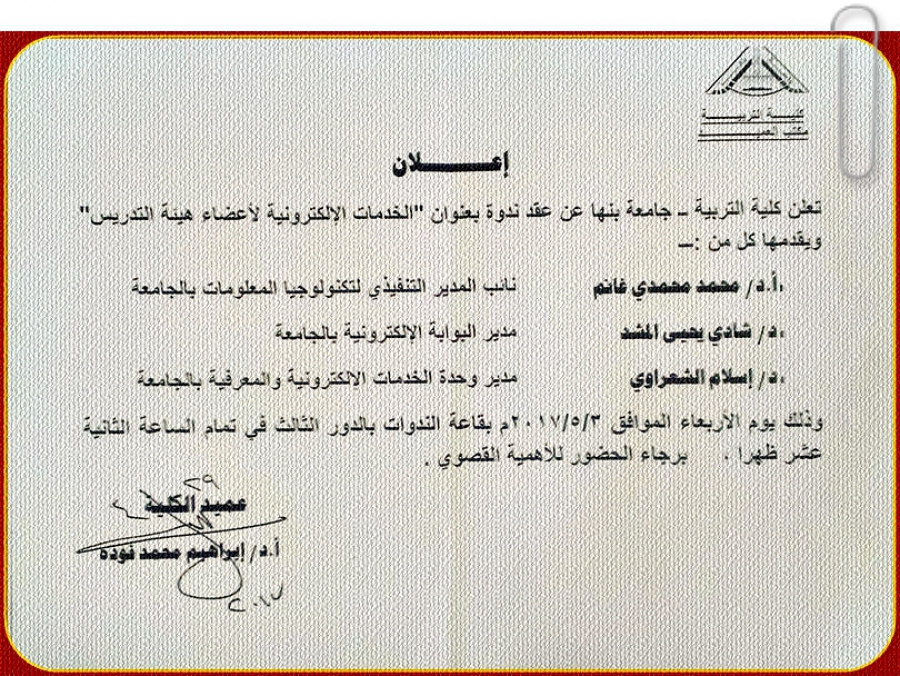 كلية التربية
مكتب العميد
إعلان
تعلن كلية التربية – جامعة بنها عن عقد ندوة بعنوان "الخدمات الالكترونية لأعضاء هيئة التدريس"
ويقدمها كل من :–
أ.د/ محمد محمدي غانم نائب المدير التنفيذي لتكنولوجيا المعلومات بالجامعة
د/ شادي يحيى المشد مدير البوابة الإلكترونية بالجامعة
د/ إسلام الشعراوي مدير وحدة الخدمات الالكترونية والمعرفية بالجامعة
وذلك يوم الأربعاء الموافق ٢٠١٧/٥/٣م بقاعة الندوات بالدور الثالث في تمام الساعة الثانية
عشر ظهرا . برجاء الحضور للأهمية القصوي .
٢٩
عميد الكلية
٤
أ.د/ إبراهيم محمد فوده
٢٠١٧